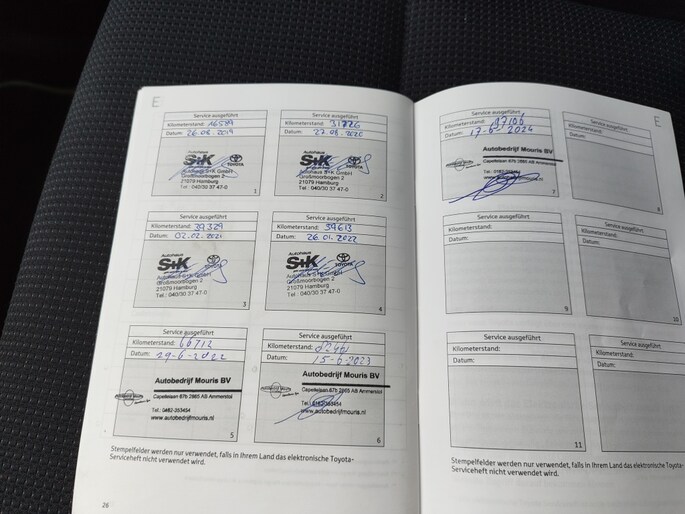 E
Service ausgeführt
Kilometerstand: 16589
Datum: 26.08.2019
Autohaus
S+K
TOYOTA
Autohaus S+K GmbH
Großmoorbogen 2
21079 Hamburg
Tel.: 040/30 37 47-0
1
Service ausgeführt
Kilometerstand: 31726
Datum: 27.08.2020
Autohaus
S+K
TOYOTA
Autohaus S+K GmbH
Großmoorbogen 2
21079 Hamburg
Tel.: 040/30 37 47-0
2
Service ausgeführt
Kilometerstand: 39329
Datum: 02.02.2021
Autohaus
S+K
TOYOTA
Autohaus S+K GmbH
Großmoorbogen 2
21079 Hamburg
Tel.: 040/30 37 47-0
3
Service ausgeführt
Kilometerstand: 39613
Datum: 26.01.2022
Autohaus
S+K
TOYOTA
Autohaus S+K GmbH
Großmoorbogen 2
21079 Hamburg
Tel.: 040/30 37 47-0
4
Service ausgeführt
Kilometerstand: 66712
Datum: 29-6-2022
Autobedrijf Mouris BV
Capellelaan 67b 2865 AB Ammerstol
Tel.: 0182-353454
www.autobedrijfmouris.nl
5
Service ausgeführt
Kilometerstand:
Datum: 15-6-2023
Autobedrijf Mouris BV
Capellelaan 67b 2865 AB Ammerstol
Tel.: 0182-353454
www.autobedrijfmouris.nl
6
Stempelfelder werden nur verwendet, falls in Ihrem Land das elektronische Toyota-
Serviceheft nicht verwendet wird.
26
E
Service ausgeführt
Kilometerstand:
Datum: 17-6-2024
Autobedrijf Mouris BV
Capellelaan 67b 2865 AB Ammerstol
7
Service ausgeführt
Kilometerstand:
Datum:
8
Service ausgeführt
Kilometerstand:
Datum:
9
Service ausgeführt
Kilometerstand:
Datum:
10
Service ausgeführt
Kilometerstand:
Datum:
11
Service ausgeführt
Kilometerstand:
Datum:
Stempelfelder werden nur verwendet, falls in Ihrem Land das elektronische Toyota-
Serviceheft nicht verwendet wird.